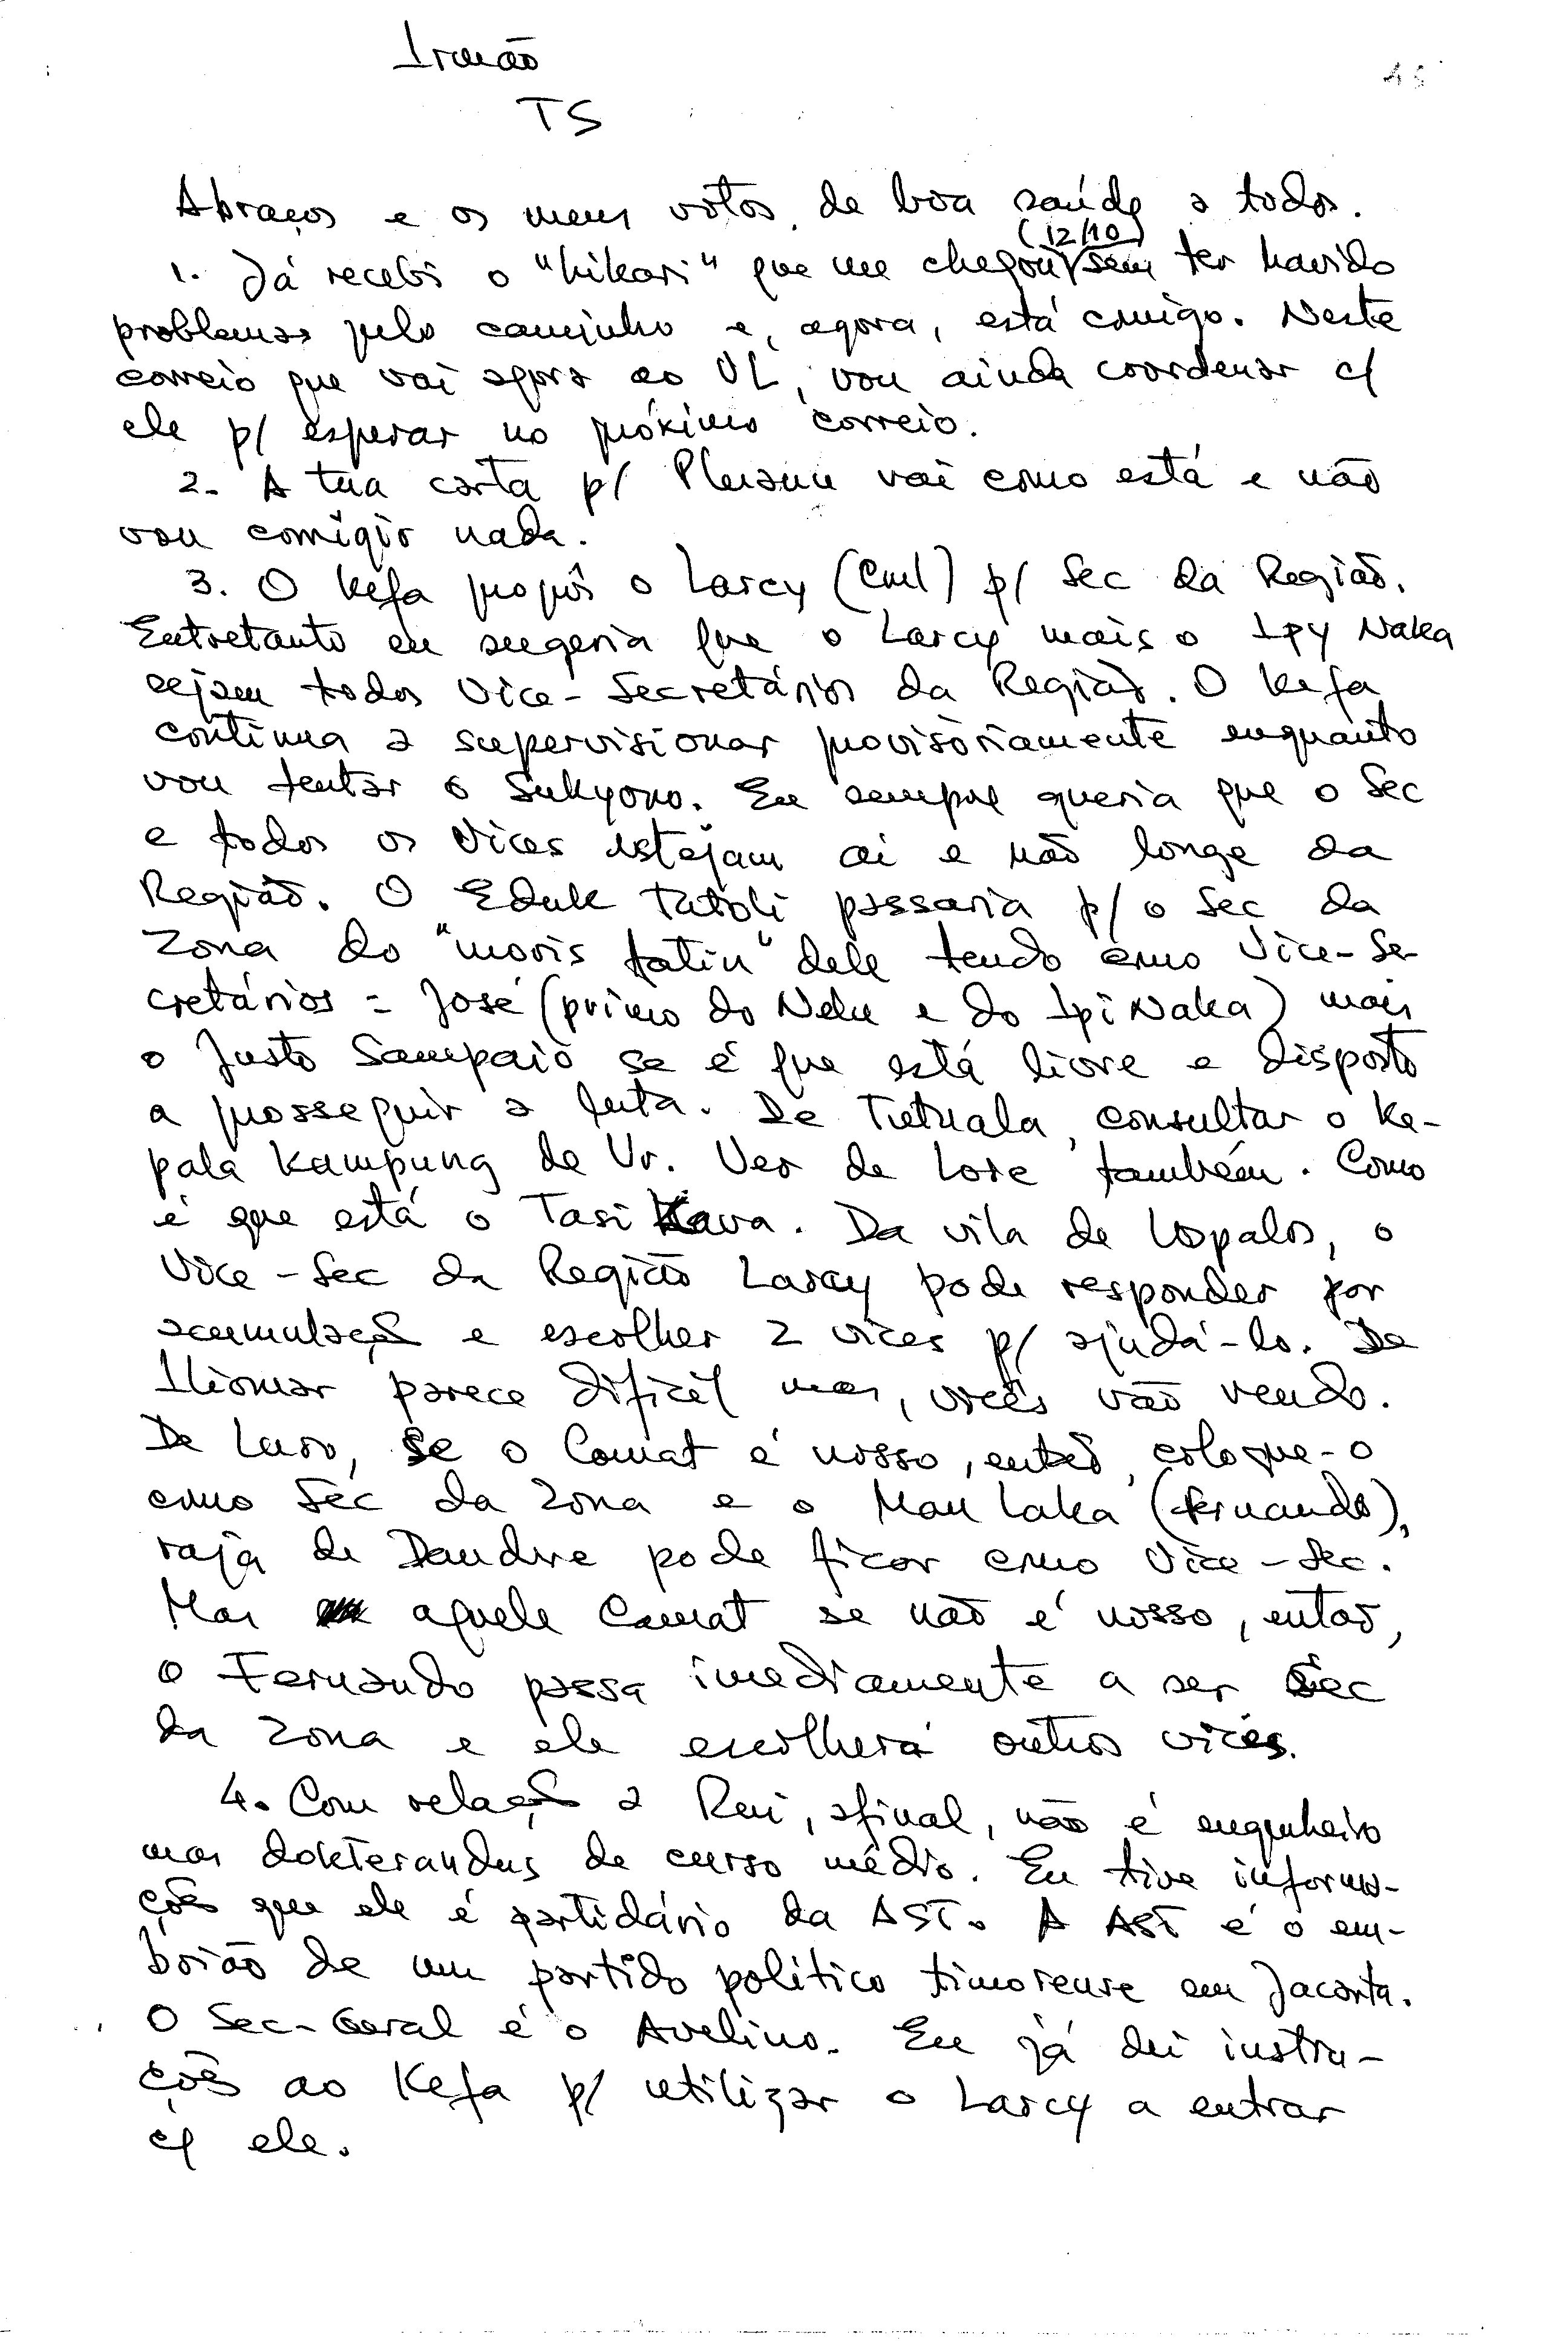 Irmão
TS
Abraços e os meus votos de boa saúde a todos.
(12/10)
1. Já recebi o "hikari" que me chegou sem ter havido
problemas pelo caminho e, agora, está comigo. Neste
correio que vai agora ao UL, vou ainda coordenar c/
ele p/ esperar no próximo correio.
2. A tua carta p/ vai como está e não
vou corrigir nada.
3. O Kefa propôs o Larcy (Cml) p/ Sec da Região.
Entretanto eu sugeria que o Larcy mais o Ipy Naka
sejam todos Vice-Secretários da Região. O Kefa
continua a supervisionar provisòriamente enquanto
vou tentar o Sukyono. Eu sempre queria que o Sec
e todos os Vices estejam aí e não longe da
Região. O Eduk Tutoli passaria p/ o Sec da
Zona do "moris fatin" dele tendo como Vice-Se-
cretários = José (primo do Nelu e do Ipi Naka) mais
o Justo Sampaio se é que está livre e disposto
a prosseguir a luta. De Tutuala, consultar o Ke-
pala Kampung de Vr. Ver de Lore também. Como
é que está o Tasi Kava. Da vila de Lospalos, o
Vice-Sec da Região Larcy pode responder por
acumulação e escolher 2 vices p/ ajudá-lo. De
Iliomar parece difícil mas, vocês vão vendo.
De Luro, se o Camat é nosso, então, coloque-o
como Sec da Zona e o Mau Laka (Fernando),
rajá de Daudere pode ficar como Vice-Sec.
Mas aquele Camat se não é nosso, então,
o Fernando passa imediamente a ser Sec
da Zona e ele escolherá outros vices.
4. Com relação a Rui, afinal, não é engenheiro
mas dokterandus de curso médio. Eu tive informa-
ções que ele é partidário da AST. A AST é o em-
boião de um partido político timorense em Jacarta.
O Sec-Geral é o Avelino. Eu já dei instru-
ções ao Kefa p/ utilizar o Larcy a entrar
c/ ele.